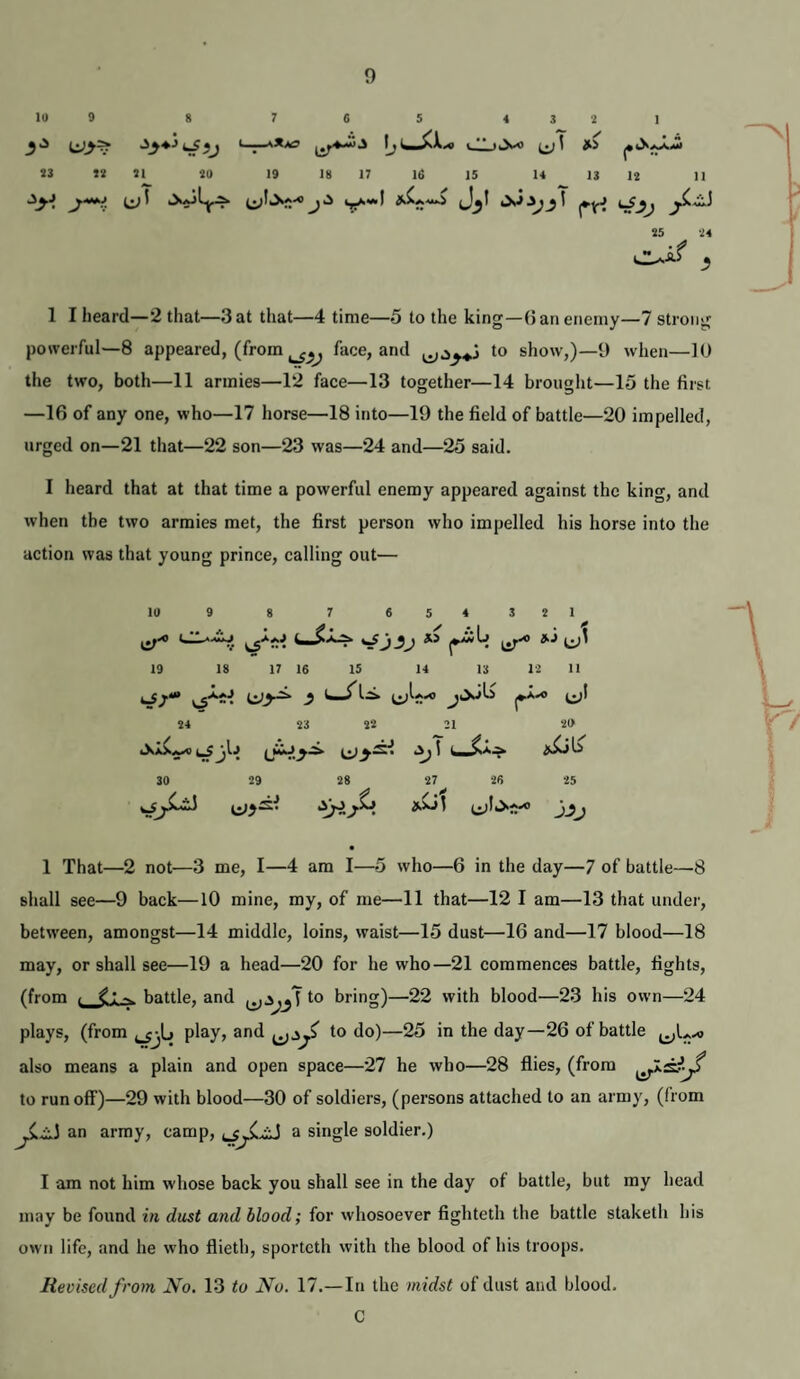 9
10 9 8 7 6 5 4 3 2 1
شنیدم که آن مدت ملک را دشمنی صعب روی نمود چون دو
23 22 21 20 19 18 17 16 15 14 13 12 11
لشکر روی بهم آوردند اول کسیکه اسپ در میدان جهانید آن پسر بود
25 24
و گفت
1 I heard—2 that—3 at that—4 time—5 to the king—6 an enemy—7 strong
powerful—8 appeared, (from روی face, and نمودن to show,)—9 when—10
the two, both—11 armies—12 face—13 together—14 brought—15 the first
—16 of any one, who—17 horse—18 into—19 the field of battle—20 impelled,
urged on—21 that—22 son—23 was—24 and—25 said.
I heard that at that time a powerful enemy appeared against the king, and
when the two armies met, the first person who impelled his horse into the
action was that young prince, calling out—
10 9 8 7 6 5 4 3 2 1
آن نه من باشم که روز جنگ بینی پشت من
19 18 17 16 15 14 13 12 11
آن منم کاندر میان خاک و خون بینی سری
24 23 22 21 20
کانکه جنگ آرد بخون خویش بازی میکند
30 29 28 27 26 25
روز میدان آنکه بگریزد بخون لشکری
1 That—2 not—3 me, I—4 am I—5 who—6 in the day—7 of battle—8
shall see—9 back—10 mine, my, of me—11 that—12 I am—13 that under,
between, amongst—14 middle, loins, waist—15 dust—16 and—17 blood—18
may, or shall see—19 a head—20 for he who—21 commences battle, fights,
(from جنگ battle, and آوردن to bring)—22 with blood—23 his own—24
plays, (from بازی play, and کردن to do)—25 in the day—26 of battle میان
also means a plain and open space—27 he who—28 flies, (from گریختن
to run off)—29 with blood—30 of soldiers, (persons attached to an army, (from
لشکر an army, camp, لشکری a single soldier.)
I am not him whose back you shall see in the day of battle, but my head
may be found in dust and blood; for whosoever fighteth the battle staketh his
own life, and he who flieth, sporteth with the blood of his troops.
Revised from No. 13 to No. 17.—In the midst of dust and blood.
C